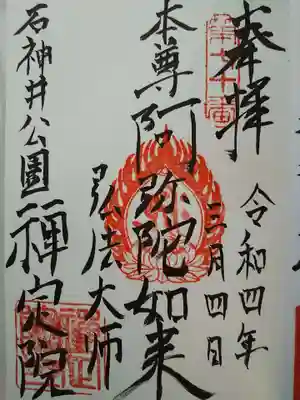 奉拝
第七十番
令和四年
三月四日
本尊阿弥陀如来
弘法大師
石神井公園
禅定院